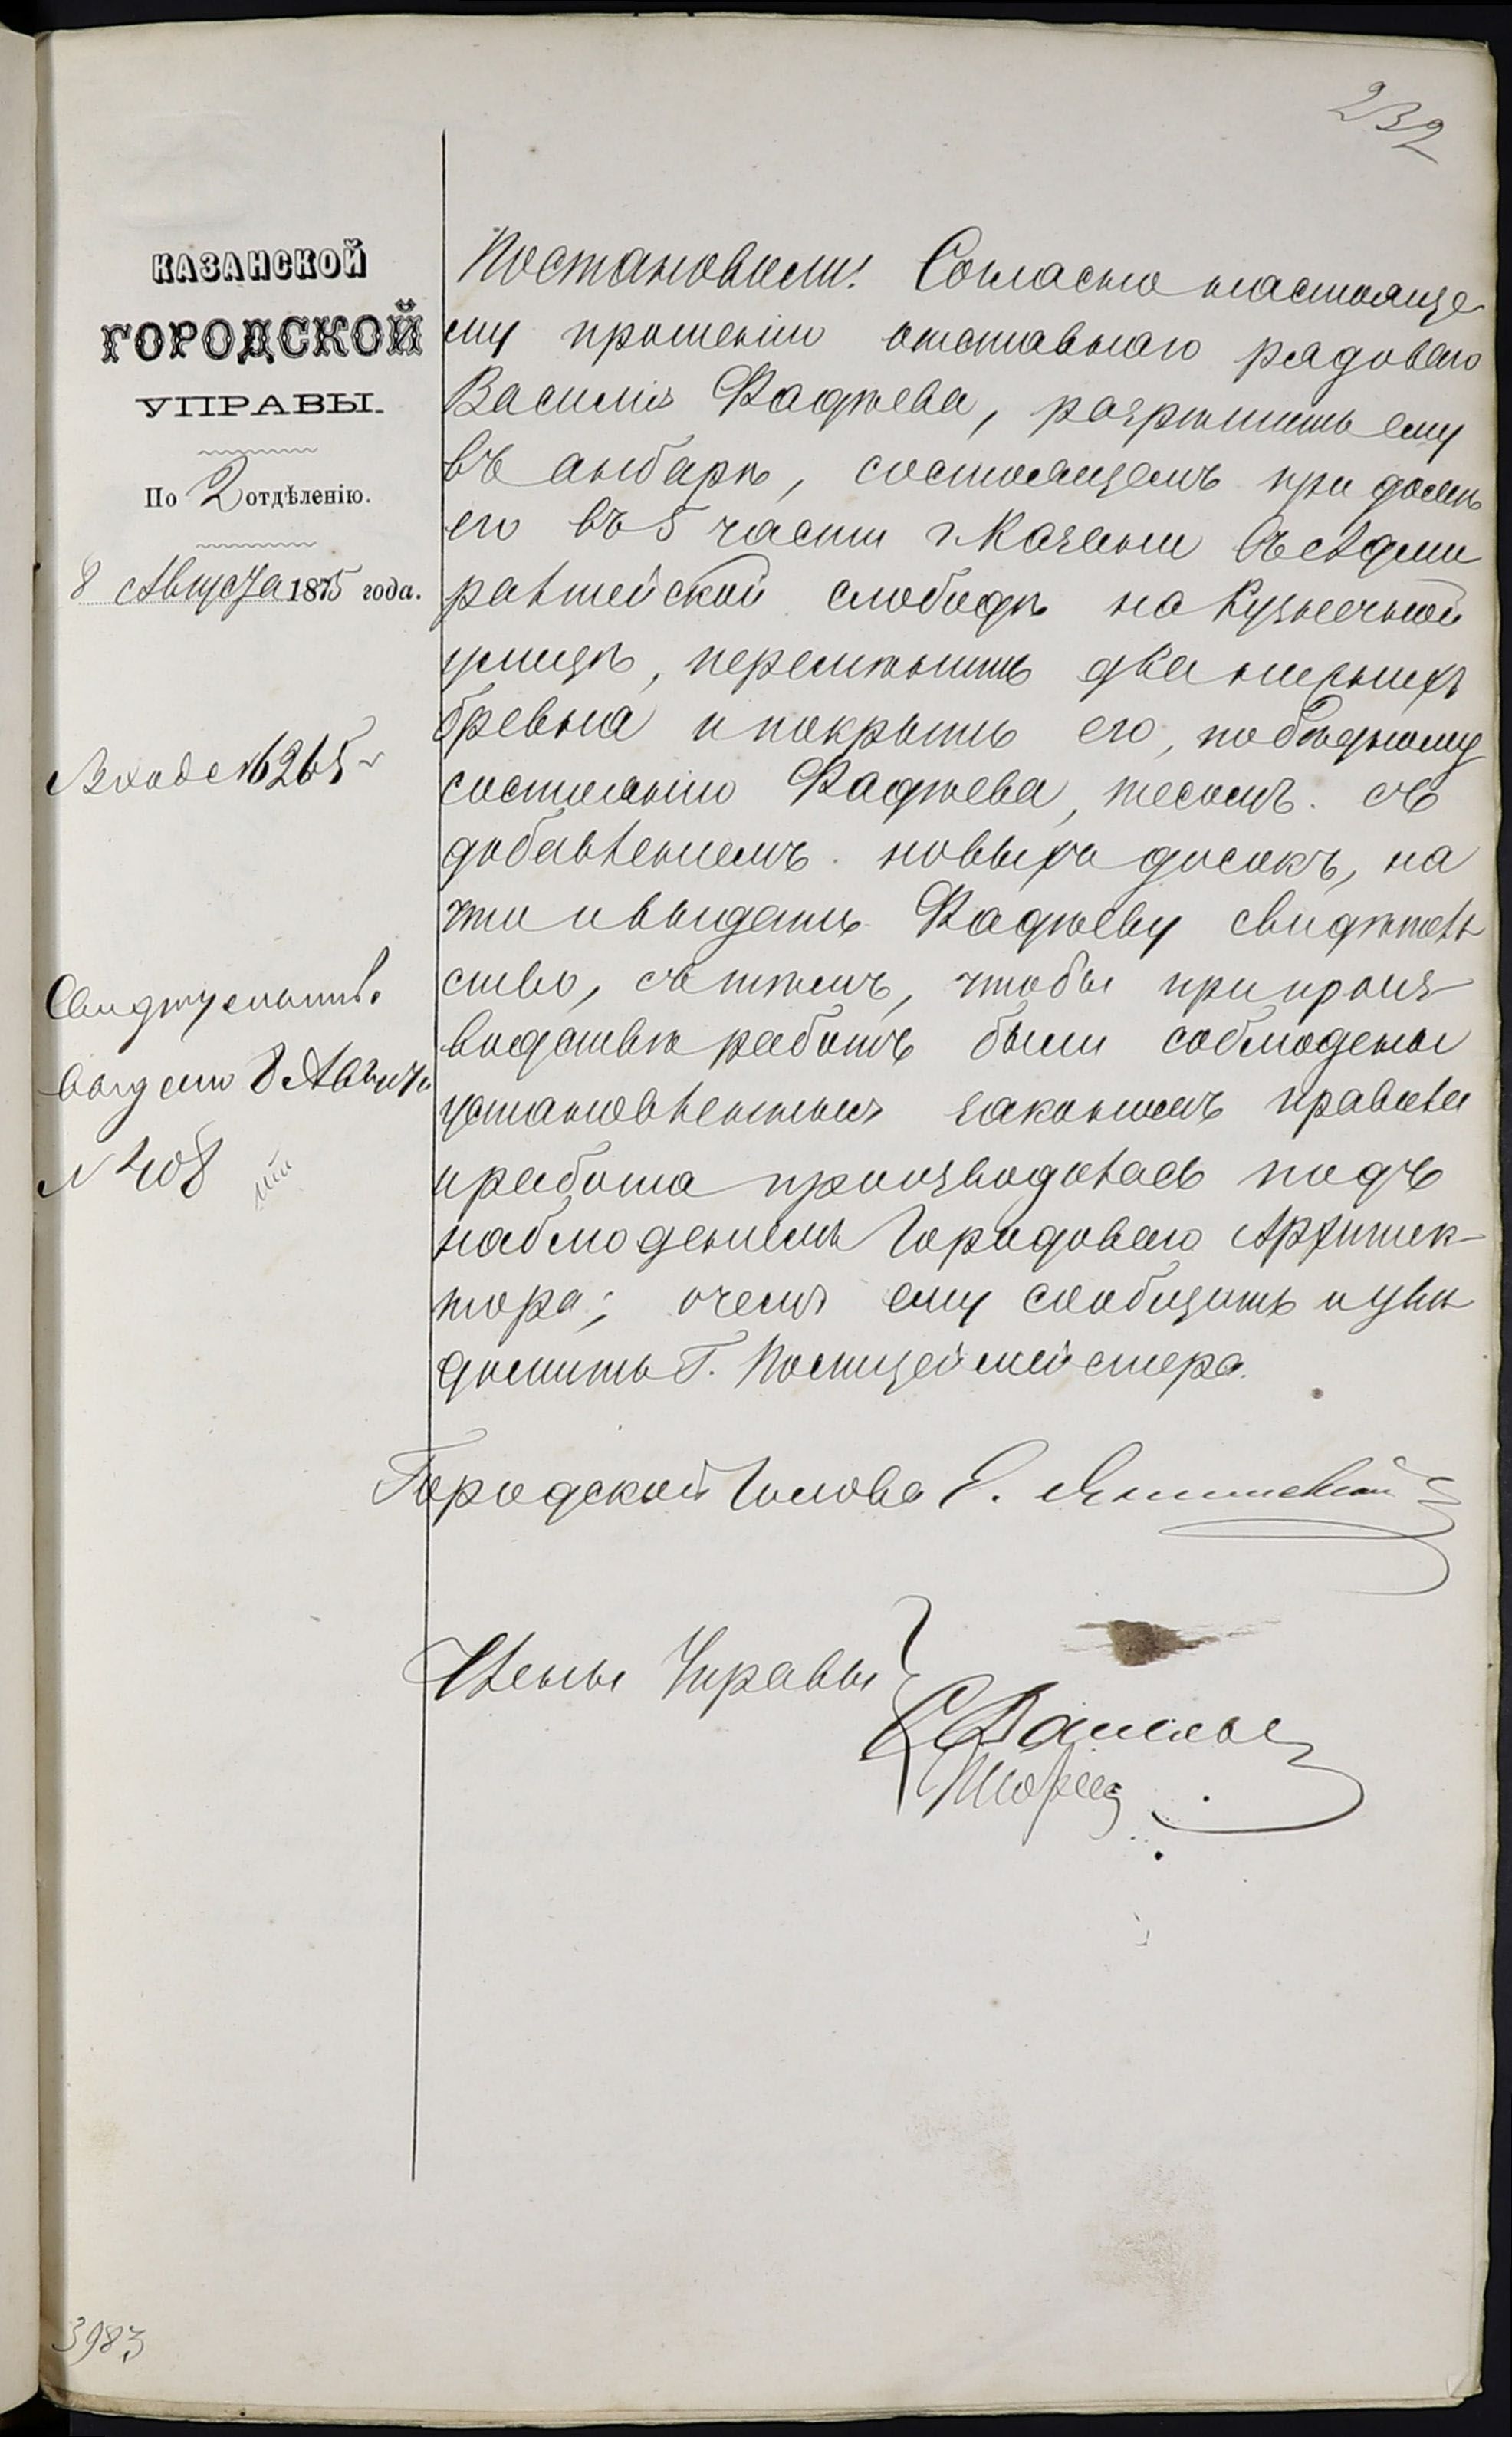 232
КАЗАНСКОЙ
ГОРОДСКОЙ
УПРАВЫ.
По 2 отдѣленію.
8 Августа 1875 года.
Входе №6265
Свидѣтельство
выдано 8 Августа
№ 408
Постановили: Согласно настояще
му прошенію отставнаго рядоваго
Василія Фадѣева, разрѣшить ему
въ анбарѣ, состоящемъ при домѣ
его въ 5 части г. Казани въ Адми
ралтейской слободѣ на Кузнечной
улицѣ, перемѣнить два нижнихъ
бревна и покрыть его, по бѣдному
состоянію Фадѣева, тесомъ съ
добавленіемъ новыхъ досокъ, на
что и выдать Фадѣеву свидѣтель
ство, съ тѣмъ, чтобы при произ-
водствѣ работъ были соблюдены
установленныя закономъ правила
и работа производилась подъ
наблюденіемъ Городоваго Архитек-
тора; о чемъ ему сообщить и увѣ
домить Г. Полицеймейстера.
Городской Голова Е. Янишевскій
Члены Управы
3983